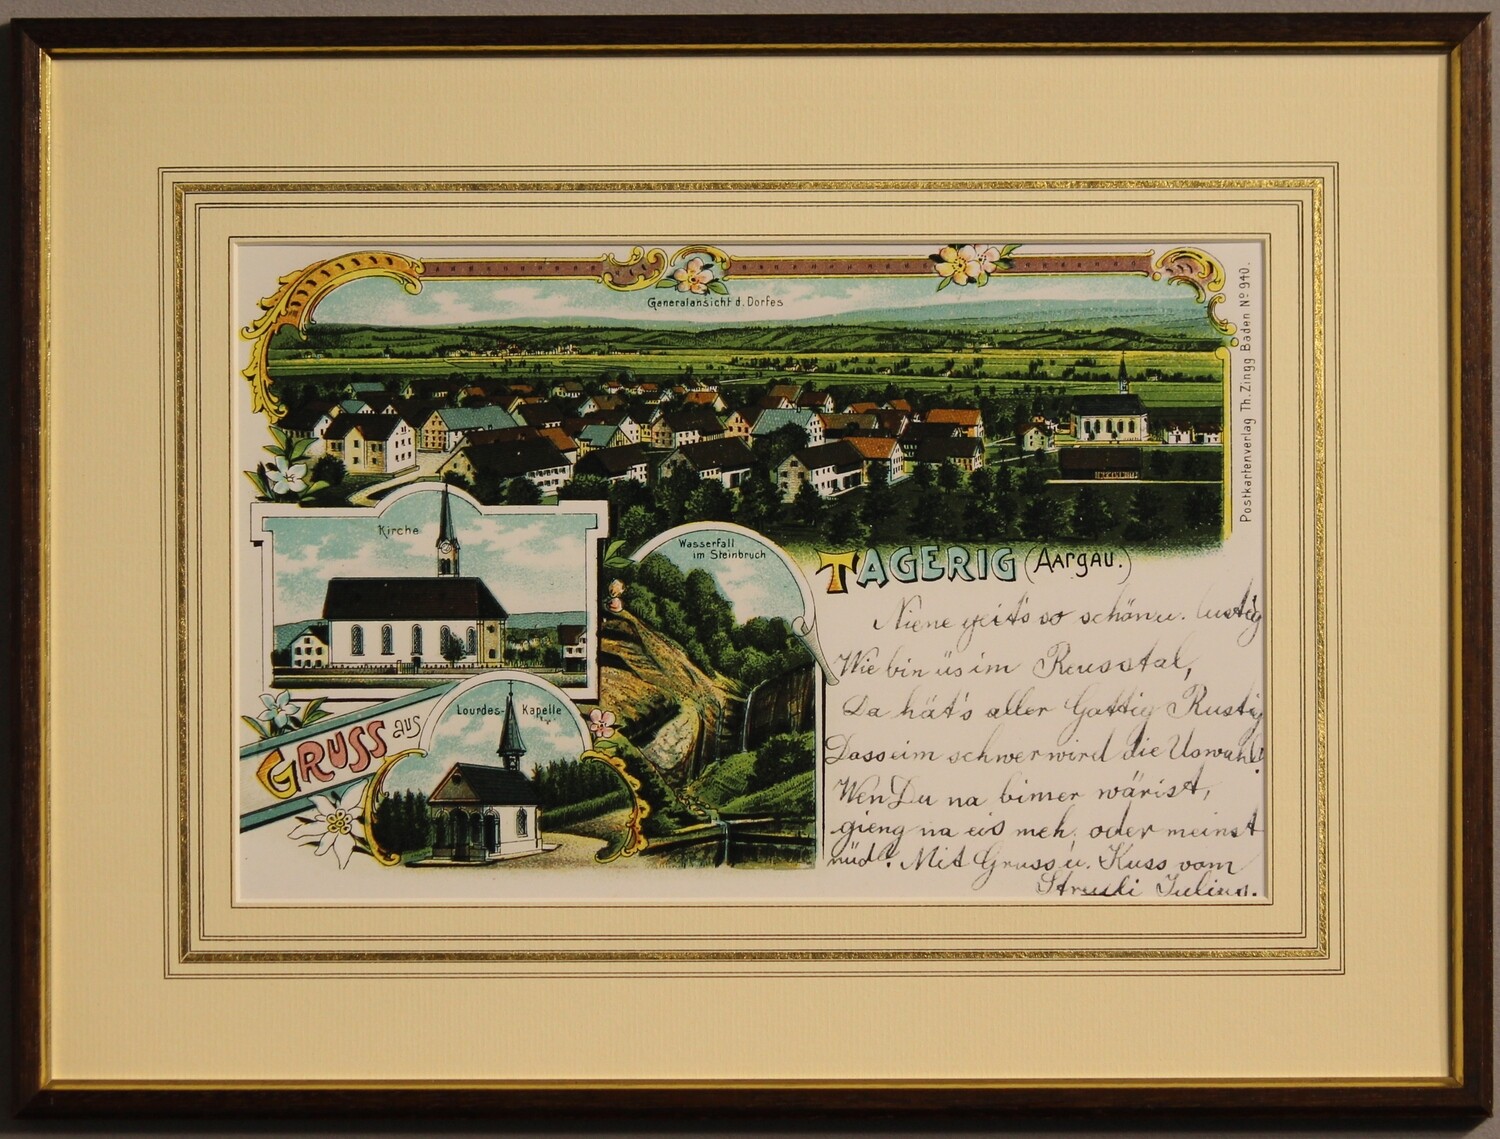 Generalansicht d. Dorfes
Postkartenverlag Th. Zingg Baden No 940.
Kirche
Wasserfall
im Steinbruch
TAGERIG (AARGAU.)
GRUSS aus
Lourdes-Kapelle
Niene geit's so schön u. lustig
Wie bin üs im Reusstal,
Da hät's aller Gattig Rustig
Dass eim schwer wird die Uswahl.
Wen Du na bimer wärist,
gieng na eis meh, oder meinst
nüd? Mit Gruss u. Kuss vom
Julius.